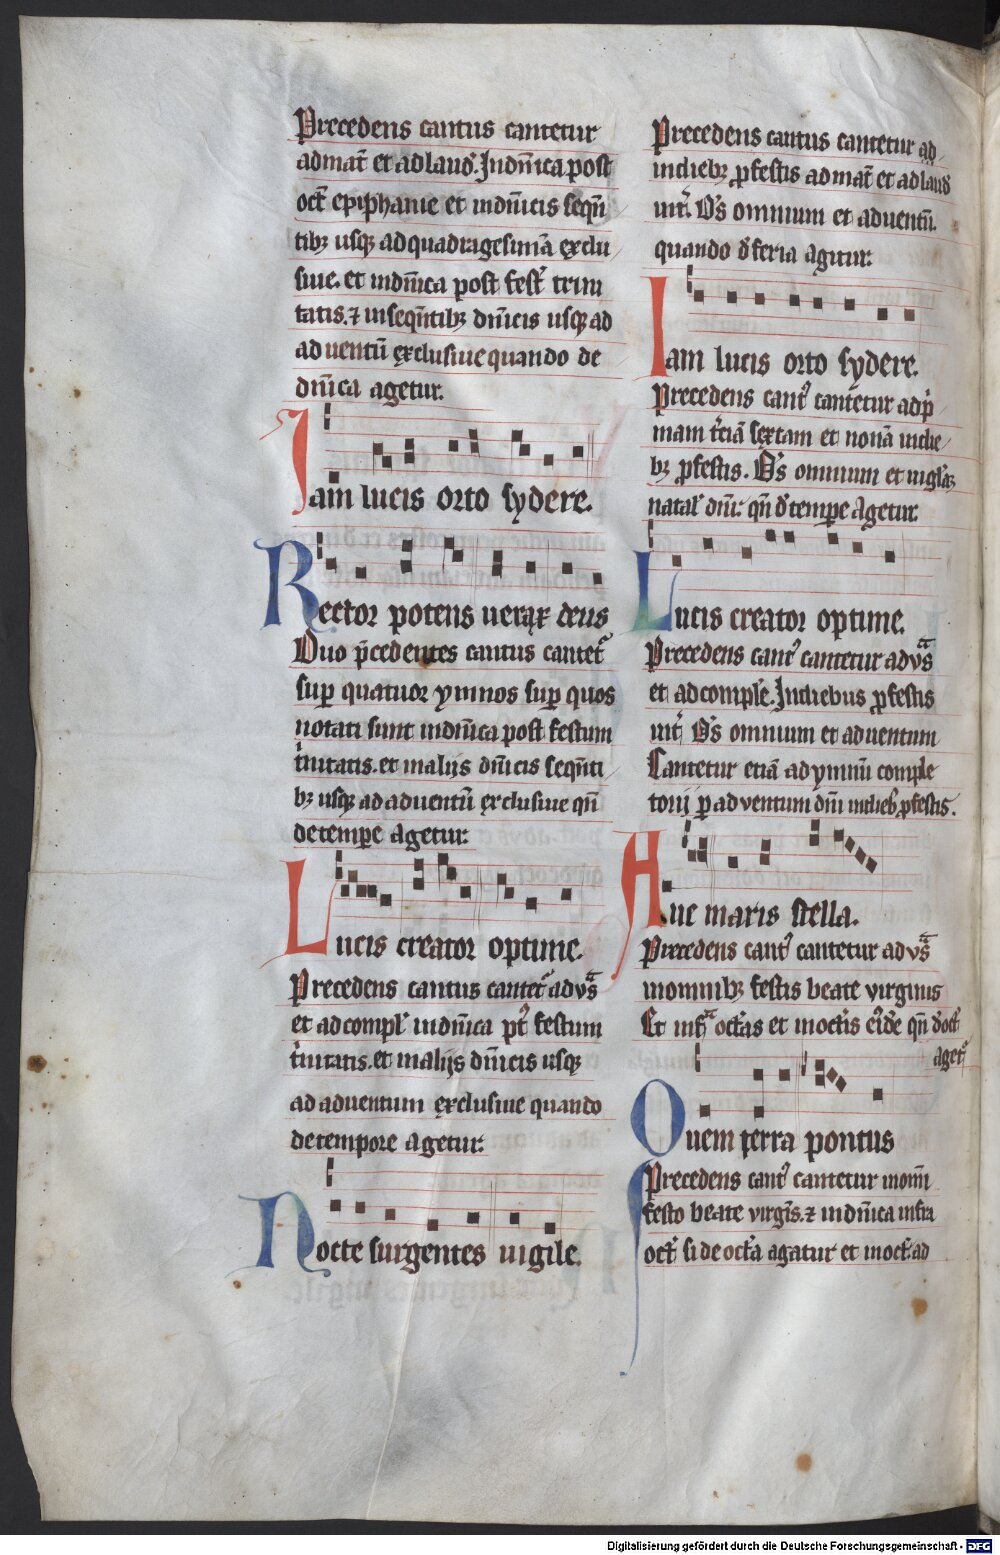 Precedens cantus cantetur
ad mat̄ et ad laud̄. In dn̄ica post
oct̄ epiphanie et in dn̄icis seqn̄
tibꝫ usqꝫ ad quadragesimā exclu
siue. et in dn̄ica post fest̄ trini
tatis. ⁊ in seqn̄tibꝫ dn̄icis usqꝫ ad
ad uentū exclusiue quando de
dn̄ica agetur.
Iam lucis orto sydere.
Rector potens uerax deus
Duo p̄cedentes cantus cantet᷑
sup̄ quatuor ymnos sup̄ quos
notati sunt in dn̄ica post festum
t̄nitatis. et in alijs dn̄icis seqn̄ti
bꝫ usqꝫ ad aduentū exclusiue qn̄
de temp̄e agetur.
Lucis creator optime.
Precedens cantus cantet᷑ ad vs̄
et ad compl̄ in dn̄ica pꝰt festum
t̄nitatis. et in alijs dn̄icis usqꝫ
ad aduentum exclusiue quando
de tempore agetur.
Nocte surgentes uigile.
Precedens cantus cantetur ad,
in diebꝫ ꝓfestis ad mat̄ et ad laud̄
int̄ Os̄ omnium et aduentū.
quando d̄ feria agitur.
Iam lucis orto sydere.
Precedens cantꝰ cantetur ad p̄
mam t̄ciā sextam et nonā in die
bꝫ ꝓfestis. Os̄ omnium et uigl̄as
natal̄ dn̄i. qn̄ d̄ temp̄e agetur.
Lucis creator optime.
Precedens cantꝰ cantetur ad vs̄
et ad comple᷑. In diebus ꝓfestis
int̄ Os̄ omnium et aduentum
Cantetur etiā ad ymnū comple
torij p̄ ad ventum dn̄i in dieb᷒ ꝓfestis.
Aue maris stella.
Precedens cantꝰ cantetur ad vs̄
in omnibꝫ festis beate virginis
Et infᷓ octas et in oct̄is eiꝰdē qn̄ d̄ oct̄
aget᷑
Quem terra pontus
Precedens cantꝰ cantetur in om̄i
festo beate virgīs. ⁊ in dn̄ica infra
oct̄ si de oct̄a agatur et in oct̄. ad
Digitalisierung gefördert durch die Deutsche Forschungsgemeinschaft - DFG